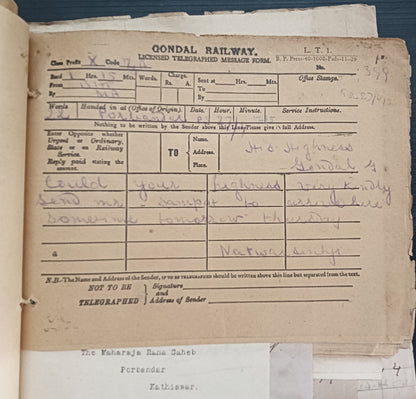 GONDAL RAILWAY.
L. T. 1.
LICENSED TELEGRAPHED MESSAGE FORM.
Class Prefix X Code
No. 399
Recd Hrs. 15 Mts. Words. Charge. Rs. A. Sent at Hrs. Mts. Office Stamp.
From
By
To
By
Words Handed in at (Office of Origin). Date. Hour. Minute. Service Instructions.
22 Porbandar
Nothing to be written by the Sender above this Line Please give full Address.
Enter Opposite whether Urgent or Ordinary, State or on Railway Service. Reply paid stating the amount.
TO
Name. H. S. Highness
Address. Gondal
Place.
Could your highness very kindly
send mr. Sambat to arrive here
sometime tomorrow thursday
Natwarsinhji
N.B.-The Name and Address of the Sender, IF TO BE TELEGRAPHED should be written above this line but separated from the text.
NOT TO BE TELEGRAPHED
Signature
and
Address of Sender
The Maharaja Rana Saheb
Porbandar
Kathiawar.